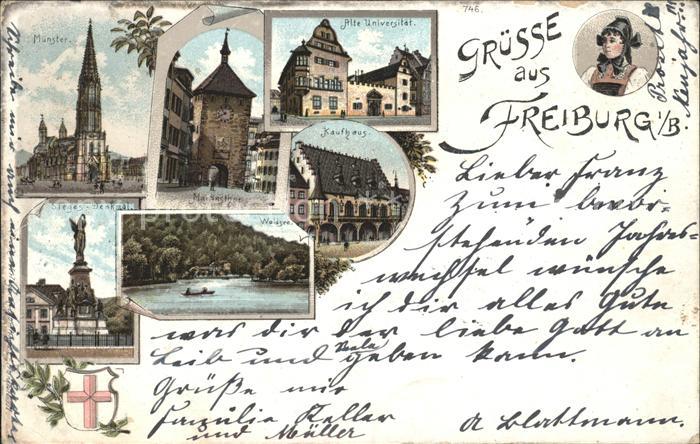 746.
Münster.
Alte Universität.
Martinsthor.
Kaufhaus.
Sieges-Denkmal.
Waldsee.
GRÜSSE
aus
FREIBURG i/B.
Lieber Franz
Zum bevor-
stehenden Jahres-
wechsel wünsche
ich dir alles Gute
was dir der liebe Gott an
Leib und Seele geben kann.
Grüße mir
Familie Keller
und Müller
A Blattmann.
Prosit
Neujahr